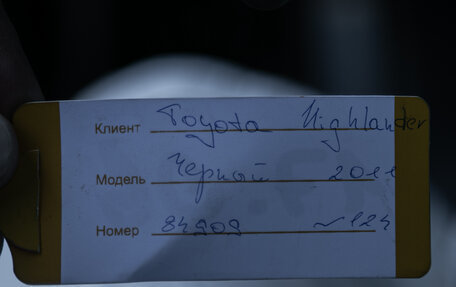 Клиент Toyota Highlander
Модель Черный 2011
Номер 84909 ~124